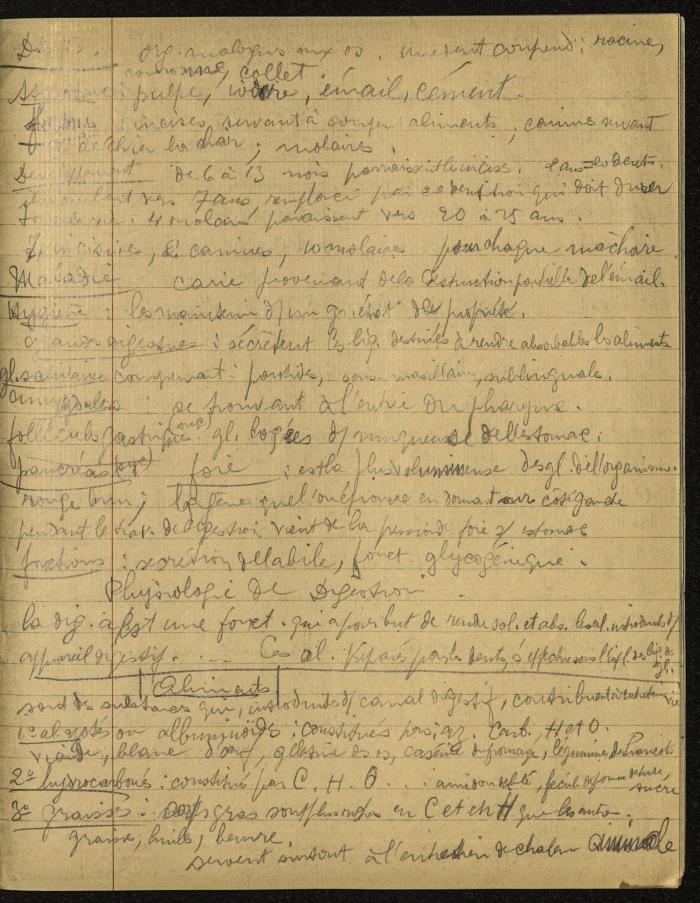 Dents. org. analogues aux os. une dent comprend : racine,
couronne, collet.
: pulpe, ivoire, émail, cément.
: incises, servant à couper aliments ; canines servant
à déchirer la chair ; molaires.
Développement de 6 à 13 mois
vers 7 ans remplacé par dentition qui doit durer
4 molaires paraissent vers 20 à 25 ans.
incisive, 2 canines, 10 molaires pour chaque mâchoire.
Maladie carie provenant de la destruction partielle de l'émail.
Hygiène : les maintenir d/ un gd état de propreté.
glandes digestives : sécrètent les liq. destinés à rendre absorbables les aliments
gl. salivaires comprenant : parotides, sous maxillaire, sublinguale.
amygdales : se trouvant à l'entrée du pharynx.
follicules gastriques gl. logées d/ muqueuse de l'estomac :
pancréas foie : est la plus volumineuse des gl. de l'organisme.
rouge brun ; la gêne que l'on éprouve en dormant sur côté gauche
pendant le trav. de digestion vient de la pression du foie s/ estomac
fonctions : sécrétion de la bile, fonct. glycogénique.
Physiologie de Digestion.
la dig. est une fonct. qui a pour but de rendre sol. et abs. les al. introduits d/
appareil digestif. ... Ces al. préparés par les dents,
Aliments
sont des substances qui, introduites d/ canal digestif, contribuent à entretenir vie
1º al. azotés ou albuminoïdes : constitués par az. Carb. H et O.
viande, blanc d'œuf, gélatine des os, caséine du fromage, légumine des haricots
2º hydrocarbonés : constitués par C. H. O. .. amidon de blé, fécule de pomme de terre,
sucre
3º graisses : corps gras sont plus riches en C et en H que les autres.
graisse, huile, beurre.
servent surtout à l'entretien de chaleur animale